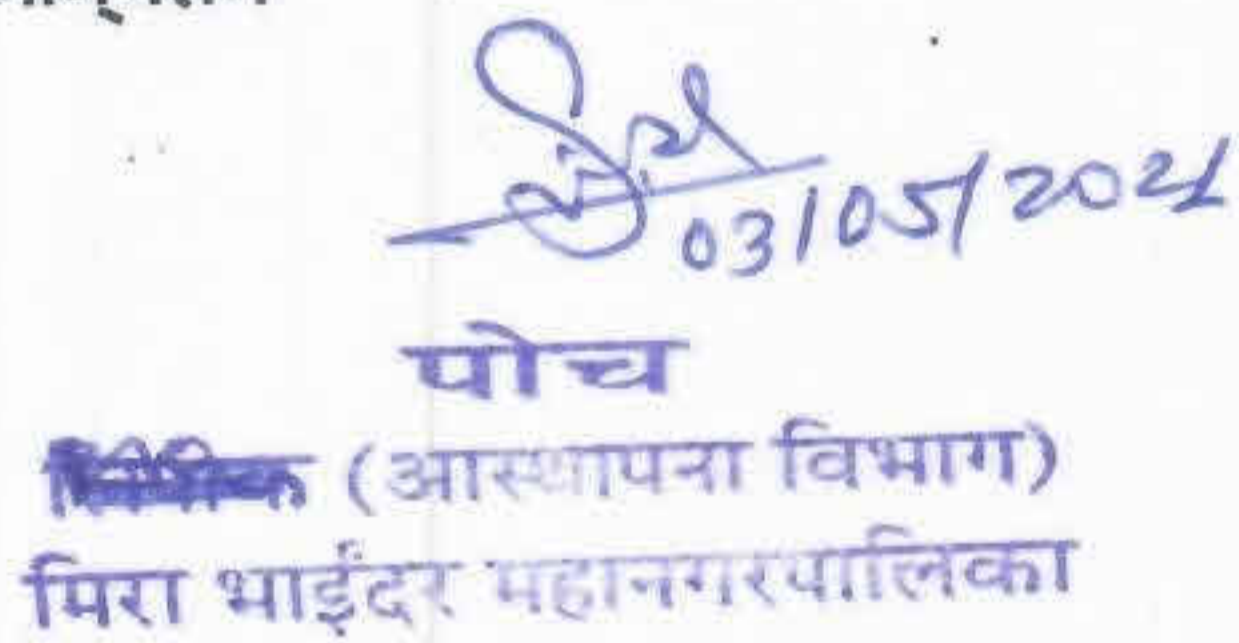 03/05/2021
पोच
(आस्थापना विभाग)
मिरा भाईंदर महानगरपालिका